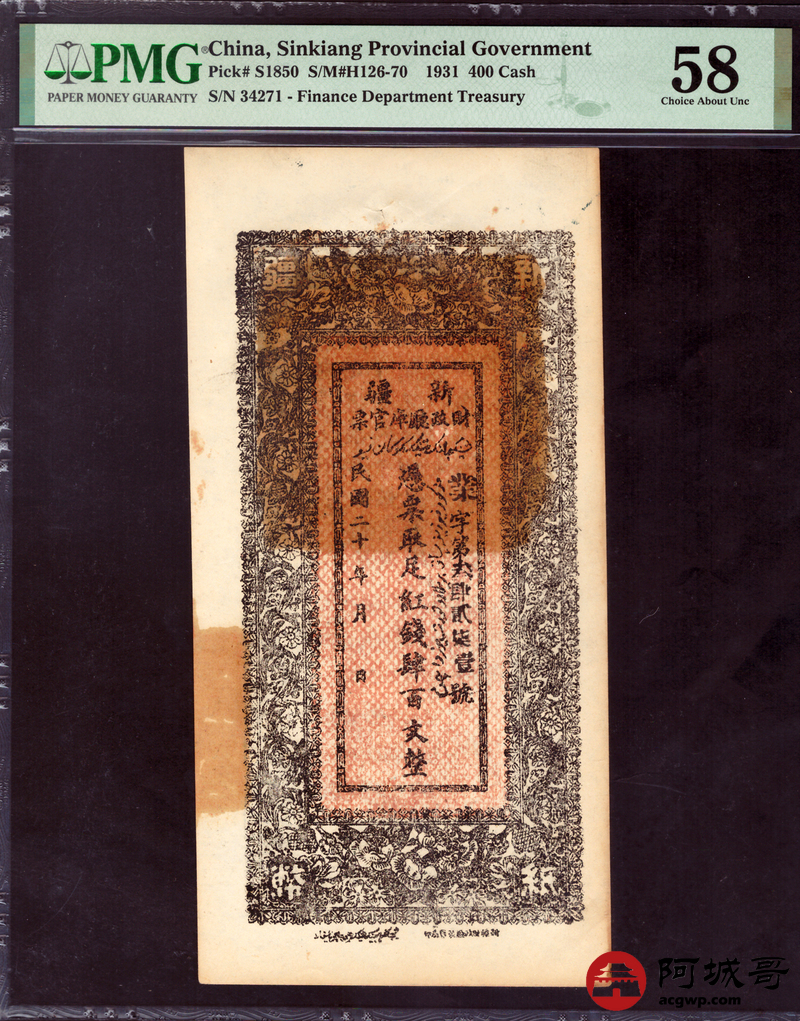 PMG
PAPER MONEY GUARANTY
China, Sinkiang Provincial Government
Pick# S1850 S/M#H126-70 1931 400 Cash
S/N 34271 - Finance Department Treasury
58
Choice About Unc
新疆
新疆
財政廳庫官票
字第
肆貳柒壹號
憑票取足紅錢肆百文整
民國二十年 月 日
紙幣
阿城哥
acgwp.com